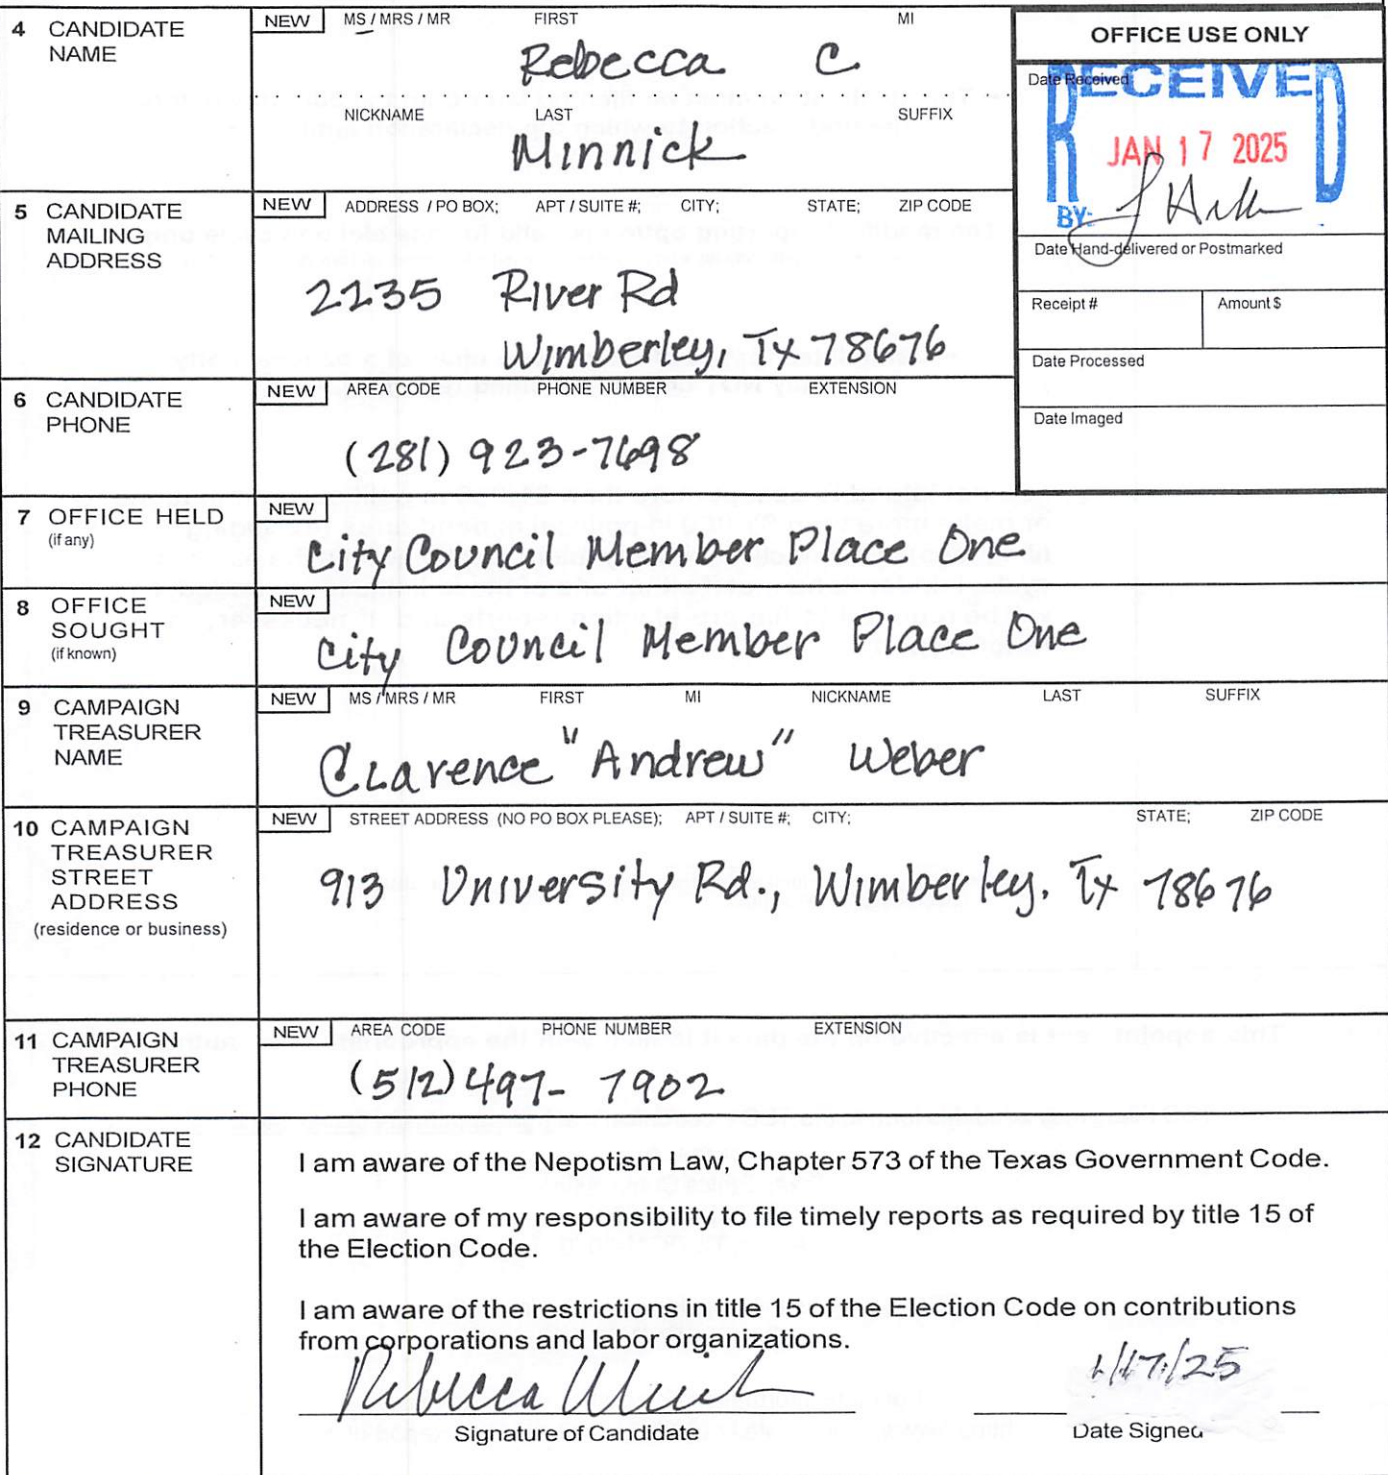 4 CANDIDATE NAME
NEW MS / MRS / MR FIRST MI
Rebecca C
NICKNAME LAST SUFFIX
Minnick
OFFICE USE ONLY
Date Received
RECEIVED
JAN 17 2025
BY:
Date Hand-delivered or Postmarked
Receipt # Amount $
Date Processed
Date Imaged
5 CANDIDATE MAILING ADDRESS
NEW ADDRESS / PO BOX; APT / SUITE #; CITY; STATE; ZIP CODE
2235 River Rd
Wimberley, Tx 78676
6 CANDIDATE PHONE
NEW AREA CODE PHONE NUMBER EXTENSION
(281) 923-7698
7 OFFICE HELD (if any)
NEW
City Council Member Place One
8 OFFICE SOUGHT (if known)
NEW
City Council Member Place One
9 CAMPAIGN TREASURER NAME
NEW MS / MRS / MR FIRST MI NICKNAME LAST SUFFIX
Clarence "Andrew" Weber
10 CAMPAIGN TREASURER STREET ADDRESS (residence or business)
NEW STREET ADDRESS (NO PO BOX PLEASE); APT / SUITE #; CITY; STATE; ZIP CODE
913 University Rd., Wimberley, Tx 78676
11 CAMPAIGN TREASURER PHONE
NEW AREA CODE PHONE NUMBER EXTENSION
(512) 497- 7902
12 CANDIDATE SIGNATURE
I am aware of the Nepotism Law, Chapter 573 of the Texas Government Code.
I am aware of my responsibility to file timely reports as required by title 15 of
the Election Code.
I am aware of the restrictions in title 15 of the Election Code on contributions
from corporations and labor organizations.
Rebecca Minnick 1/17/25
Signature of Candidate Date Signed